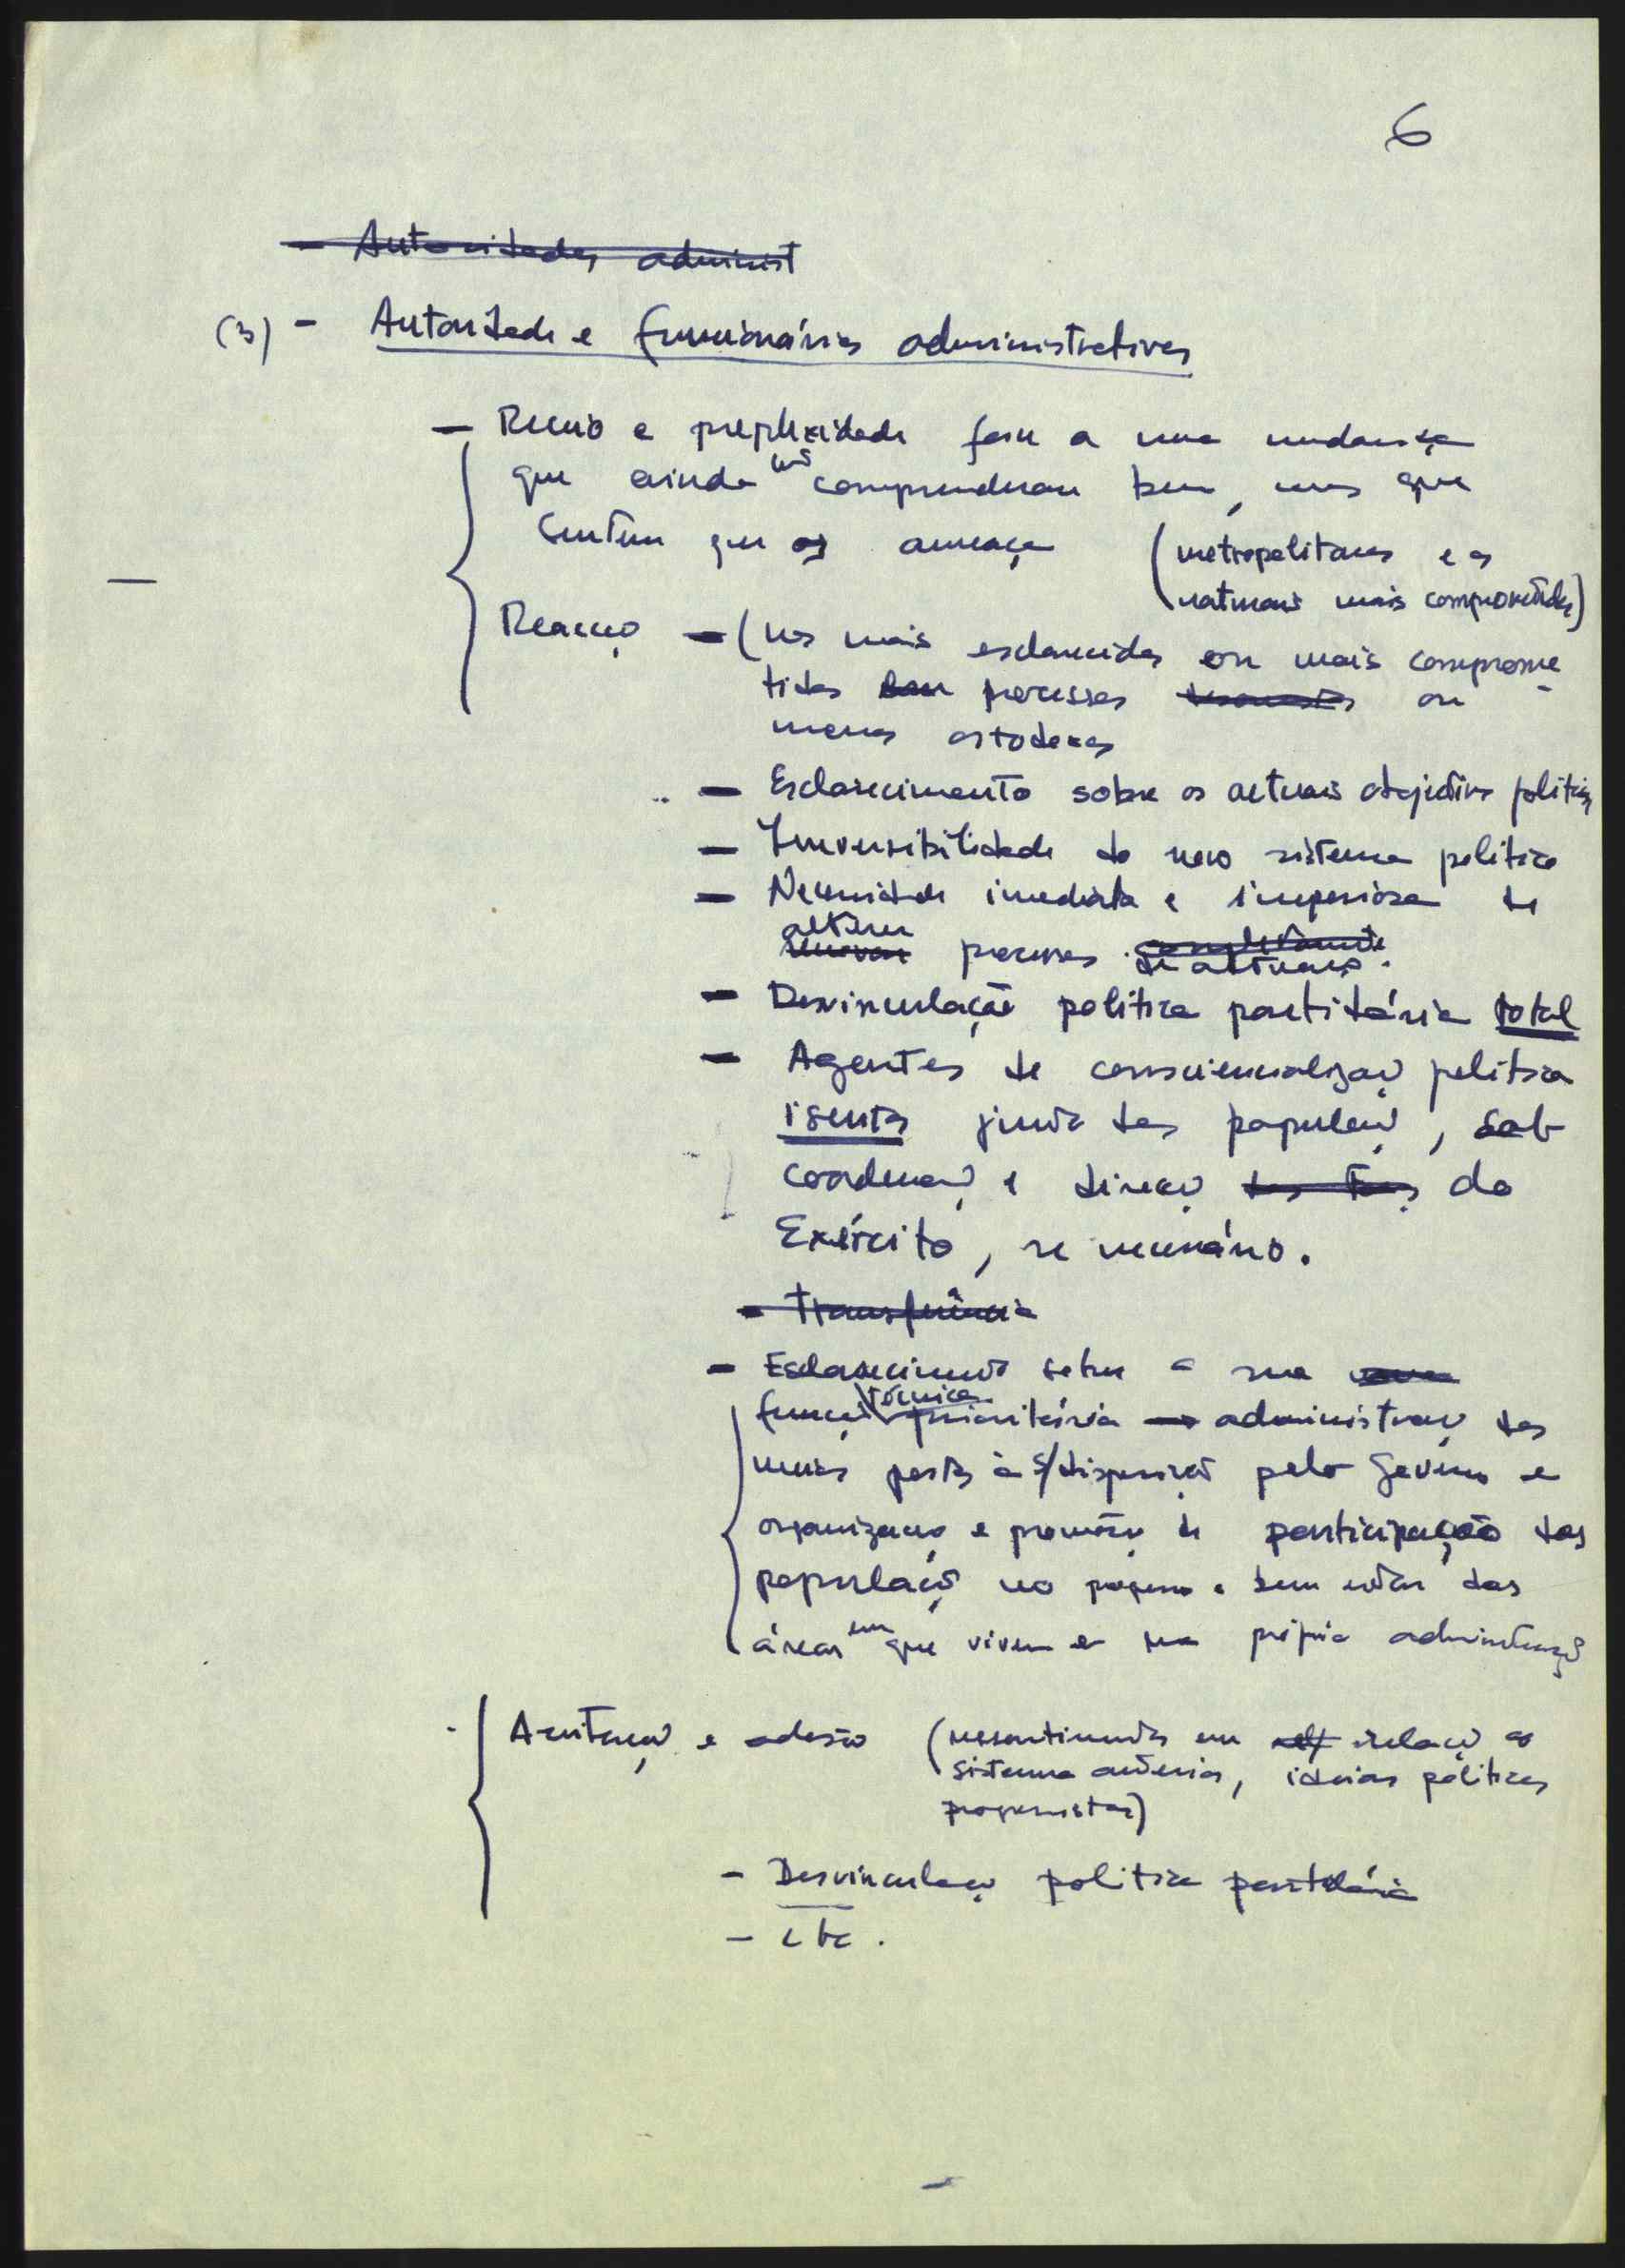 6
- Autoridades administ
(3) - Autoridade e funcionários administrativos
- Receio e preplexidade face a uma mudança
que ainda não compreenderam bem, mas que
sentem que os ameaça (metropolitanos e os
naturais mais comprometidos)
Reacção - (nos mais esclarecidos ou mais comprome
tidos processos ou
menos ortodoxos
- Esclarecimento sobre os actuais objectivos políticos
- Irreversibilidade do novo sistema político
- Necessidade imediata e imperiosa de
alterar
renovar processos completamente
de actuação.
- Desvinculação política partidária total
- Agentes de consciencialização política
isentos junto das população, sob
coordenação e direcção do
Exército, se necessário.
- Transferência
- Esclarecimento sobre a sua
técnica
função prioritária → administração dos
meios postos à s/disposição pelo Govêrno e
organização e promoção de participação das
populações no progresso e bem estar das
áreas em que vivem e na própria administração
Aceitação e adesão (ressentimentos em relação ao
sistema anterior, ideias políticas
progressistas)
- Desvinculação política partidária
- etc.